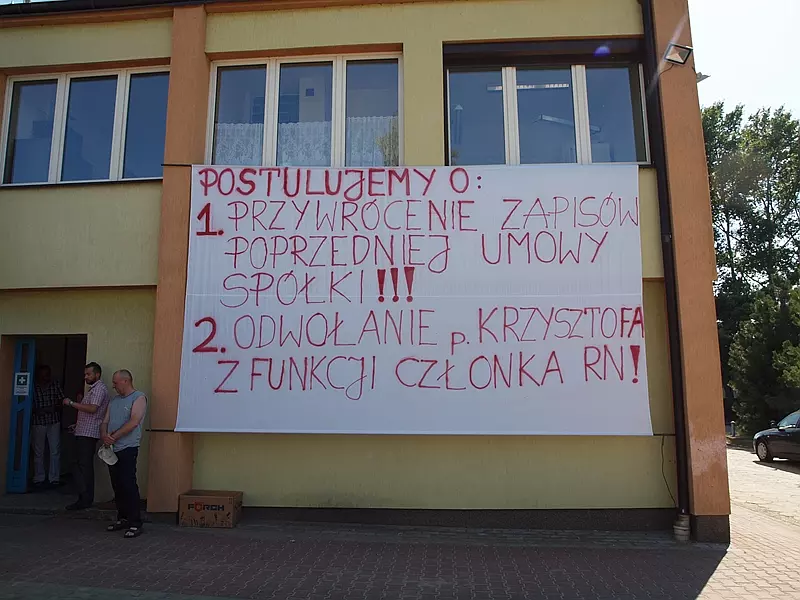 POSTULUJEMY O:
1. PRZYWRÓCENIE ZAPISÓW
POPRZEDNIEJ UMOWY
SPÓŁKI!!!
2. ODWOŁANIE p. KRZYSZTOFA
Z FUNKCJI CZŁONKA RN!
FÖRCH